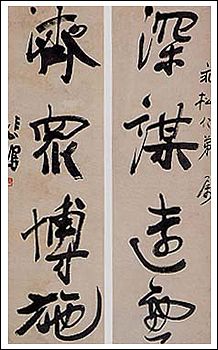 松 弟属
深謀遠慮
濟眾博施
悲鴻